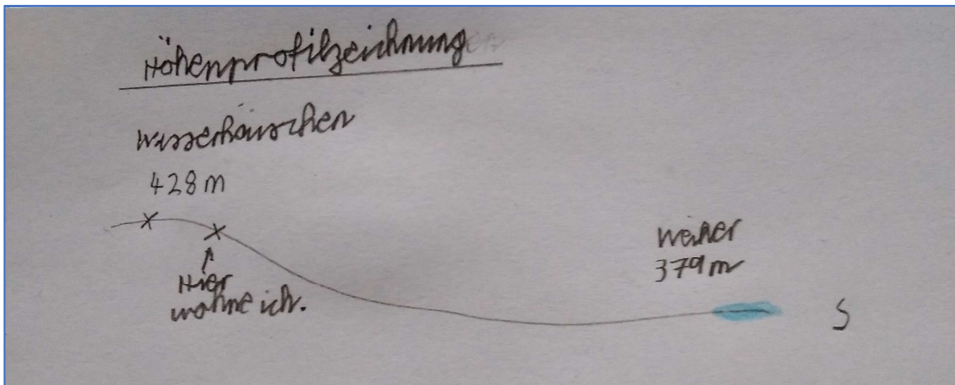 Höhenprofilzeichnung
Wasserhäuschen
428 m
Hier
wohne ich.
Weiher
379 m
S